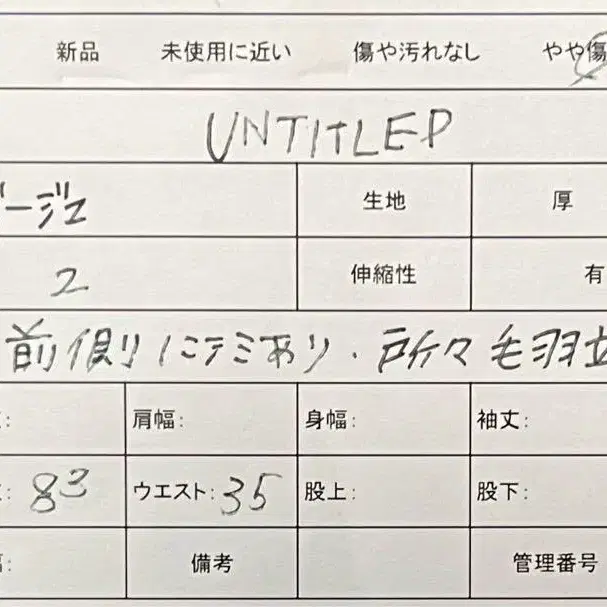 新品 未使用に近い 傷や汚れなし やや傷
UNTITLED
ベージュ 生地 厚
2 伸縮性 有
前側にシミあり・所々毛羽立
肩幅: 身幅: 袖丈:
83 ウエスト:35 股上: 股下:
備考 管理番号